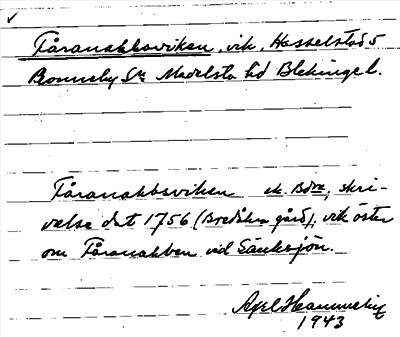 Fåranabbsviken, vik, Hasselstad 5
Ronneby Sn Medelsta hd Blekinge l.
Fåranabbsviken ek. Bdra, skri-
velse dat 1756 (Bredåkra gård), vik öster
om Fåranabben vid Sänksjön.
Axel
1943